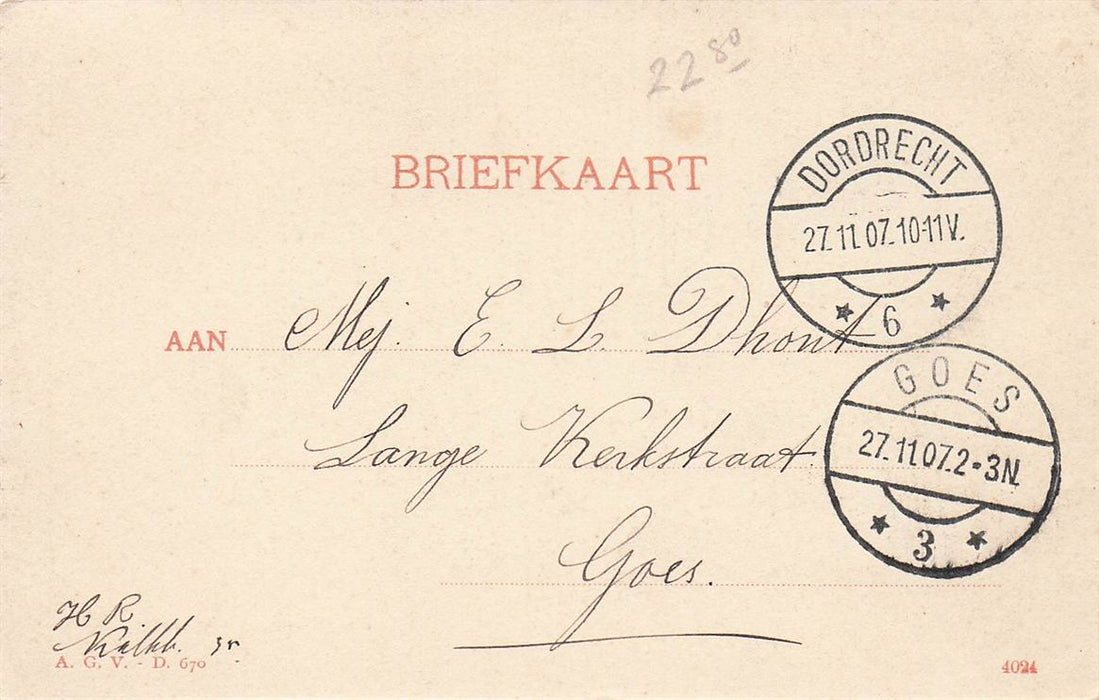 22 80
BRIEFKAART
DORDRECHT
27.11.07.10-11V.
6
AAN Mej. E. L. Dhont
GOES
27.11.07.2-3N.
3
Lange Kerkstraat
Goes.
H R
A. G. V. - D. 670
4024